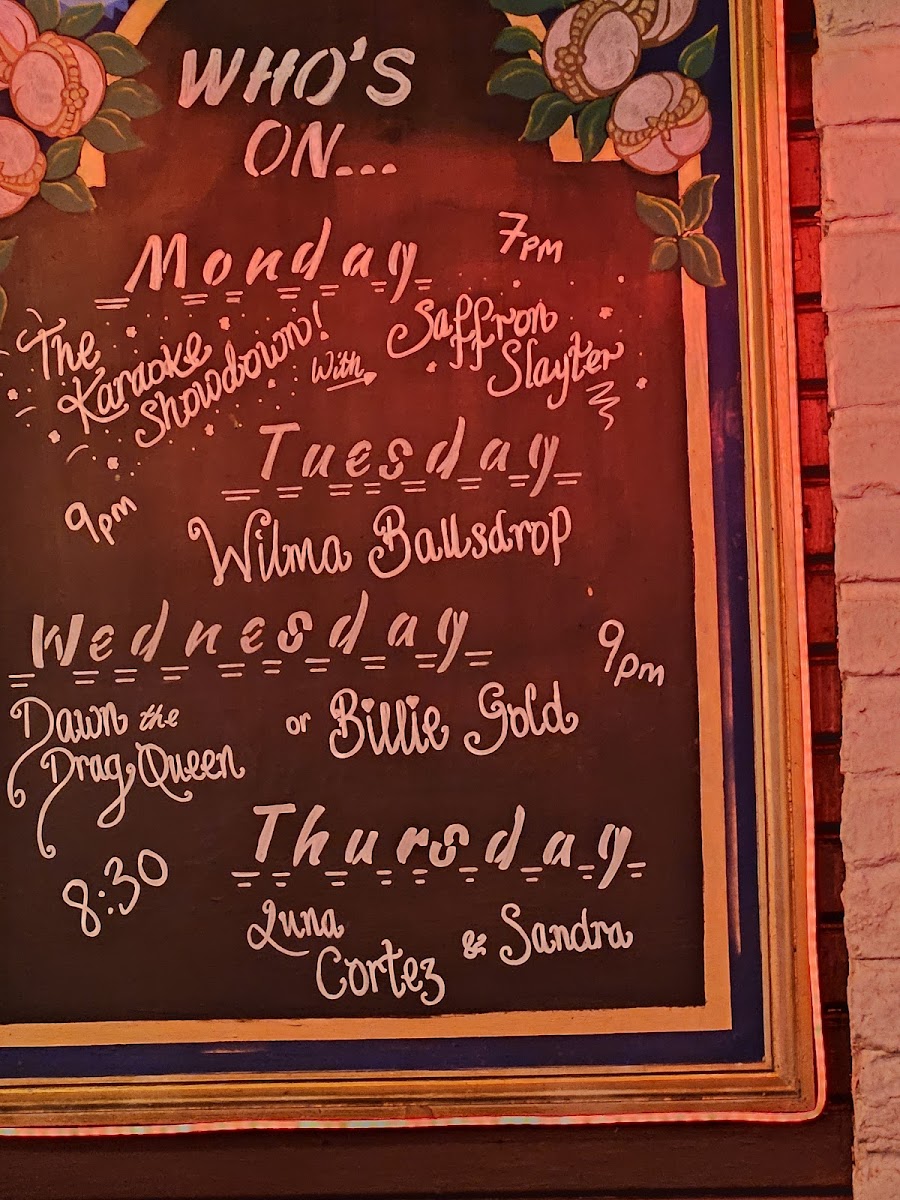 WHO'S
ON...
Monday
7pm
The
Karaoke
Showdown!
With
Saffron
Slayter
Tuesday
9pm
Wilma Ballsdrop
Wednesday
9pm
Dawn the
Drag Queen
or Billie Gold
Thursday
8:30
Luna
Cortez
& Sandra